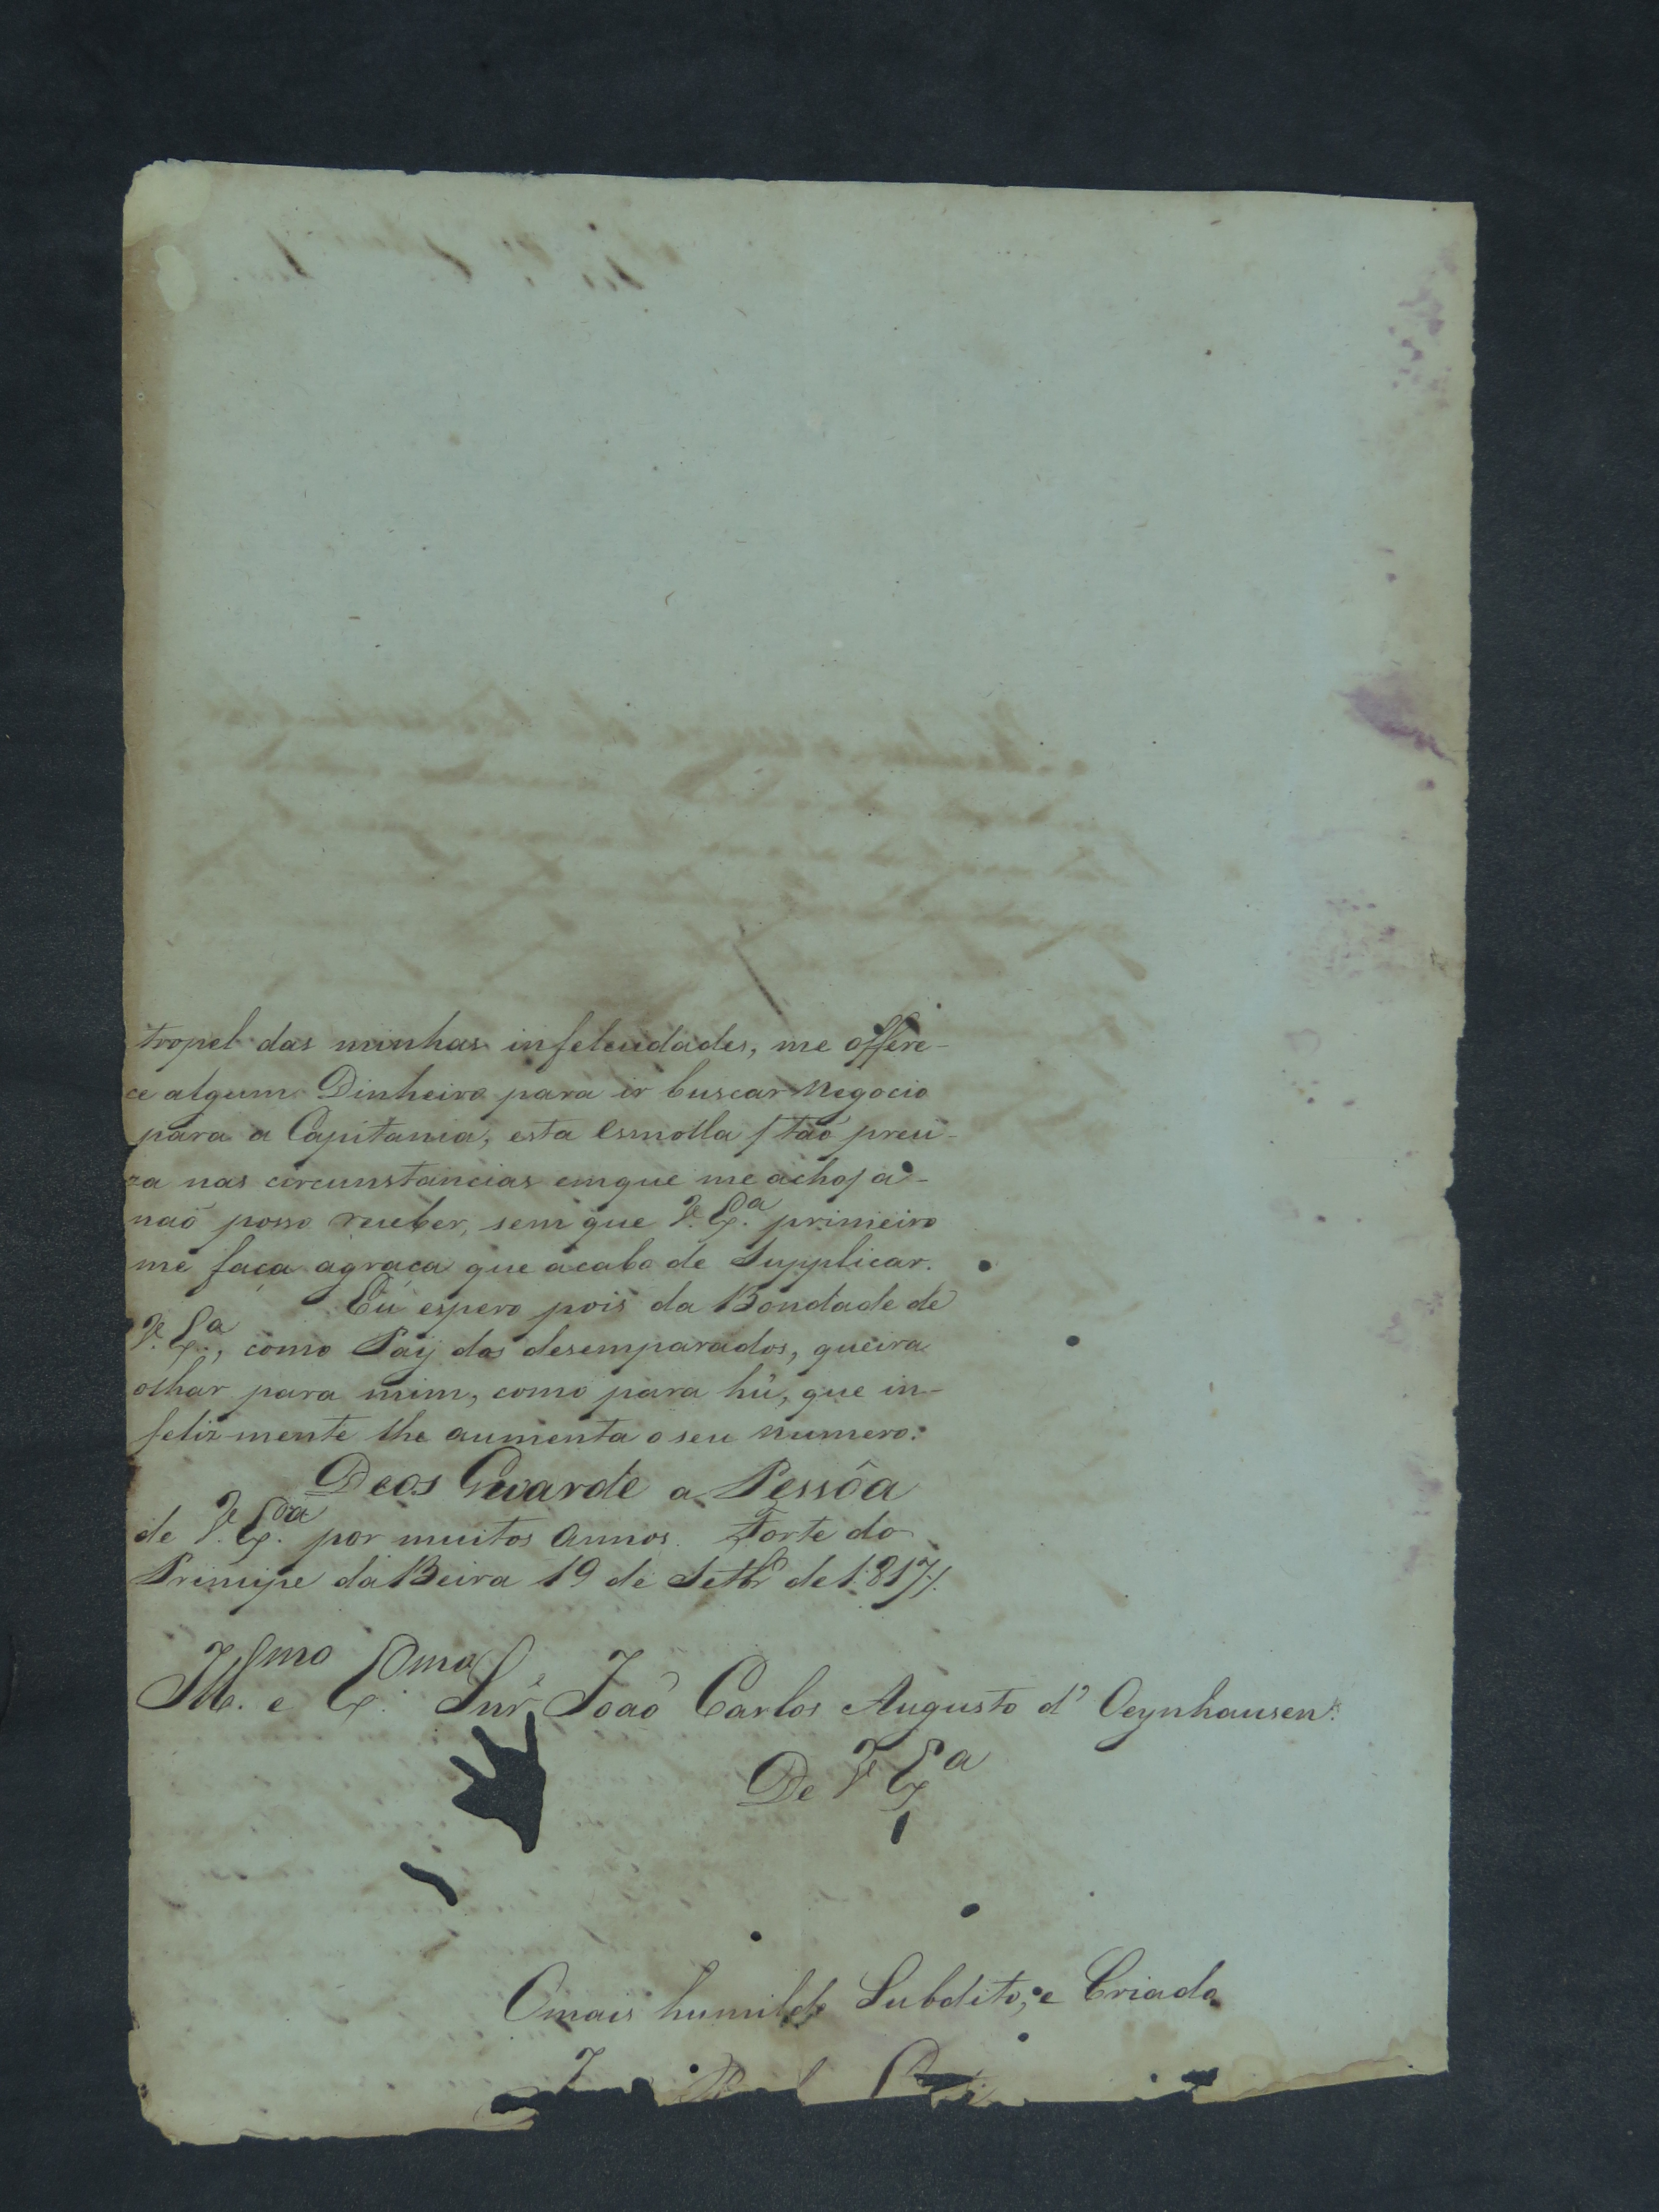 tropel das minhas infelecidades, me offere-
ce algum Dinheiro para ir buscar Negocio
para a Capitania, esta Esmolla / taõ preci-
za nas circunstancias emque me acho / a-
naõ posso receber, sem que V. Ex.ª primeiro
me faça agraça que acabo de Supplicar.
Eu espero pois da Bondade de
V. Ex.ª, como Pay dos desemparados, queira
olhar para mim, como para hũ, que in-
felizmente lhe aumenta o seu numero.
Deos Guarde a Pessôa
de V. Ex.ª por muitos annos. Forte do
Principe da Beira 19 de Setbr.º de 1817/.
Ill.mo e Ex.mo Snr. Joaõ Carlos Augusto d' Oeynhausen.
De V Ex.ª
Omais humilde Subdito, e Criado